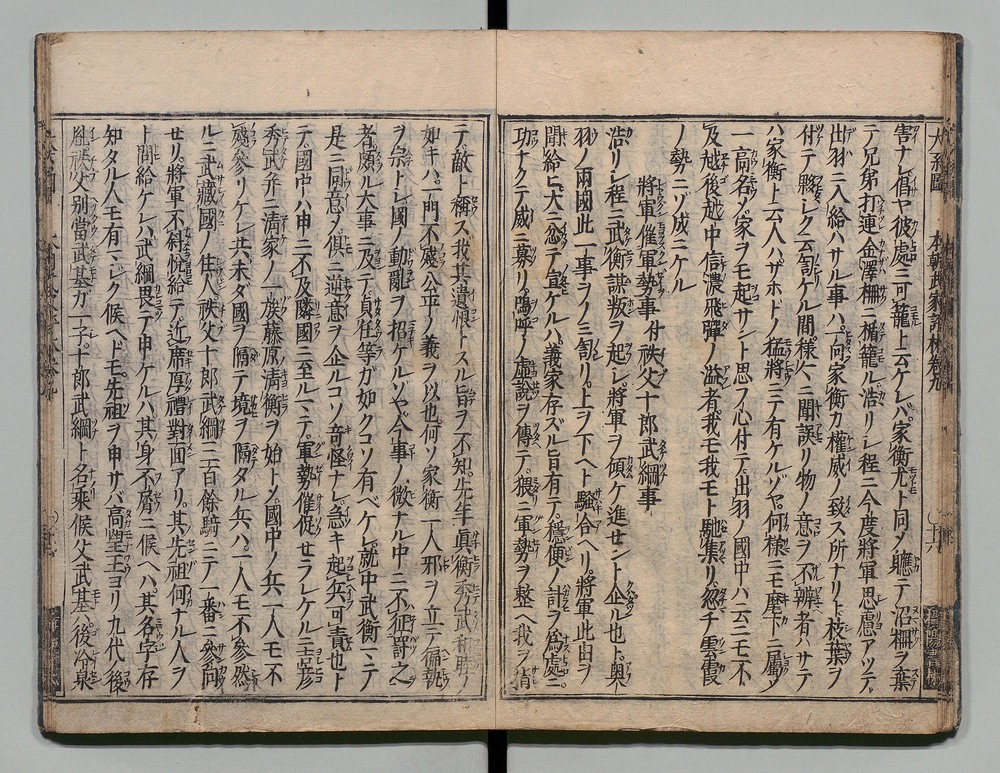 害ナレ倡ヤ彼處ニ可籠上云ケレバ家衡尤ト同ノ聽テ沼柵ヲ棄
テ兄弟打連金澤柵ニ楯籠ル浩リシ程ニ今度將軍思慮アツテ
出羽ニ入給ハサル事ハ一向家衡カ權威ノ致ス所ナリト枝葉ヲ
付テ夥シク云訇ケル間様々ニ聞誤リ物ノ意ヲ不辨者ハサテ
ハ家衡ト云人ハザホドノ猛將ニテ有ケルゾヤ何様ニモ麾下ニ屬ソ
一高名ノ家ヲモ起サント思フ心付テ出羽ノ國中ハ云ニモ不
及越後越中信濃飛驒ノ溢者我モ我モト馳集リ忽チ雲霞
ノ勢ニゾ成ニケル
將軍催軍勢事付秩父十郎武綱事
浩リシ程ニ武衡謀叛ヲ起シ將軍ヲ傾ケ進セント企ル也ト奥
羽ノ兩國此一事ヲノミ訇リ上ヲ下ヘト騒合ヘリ將軍此由ヲ
聞給ヒ大ニ忿テ宣ケルハ義家存ズル旨有テ穩便ノ計ヲ爲處ニ
功ナクテ威ニ募リ嗚呼ノ虚説ヲ傳テ猥ニ軍勢ヲ整ヘ我ヲ指
テ敵ト稱ス我其遺恨トスル旨ヲ不知先年眞衡秀武和睦ノ
如キハ一門不殘公平ノ義ヲ以也何ソ家衡一人邪ヲ立テ偏執
ヲ宗トシ國ノ動亂ヲ招ケルゾヤ今事ノ微ナル中ニ不征罸之
者頗ル大事ニ及テ貞任等ガ如クコソ有ベケレ就中武衡マテ
是ニ同意ノ倶ニ逆意ヲ企ルコソ奇怪ナレ急キ起兵可責也ト
テ國中ハ申ニ不及隣國ニ至ルマテ軍勢催促セラレケルニ吉彦
秀武并ニ清家ノ一族藤原清衡ヲ始トノ國中ノ兵一人モ不
殘參リケレ共未タ國ヲ隔テ境ヲ隔タル兵ハ一人モ不參然
ルニ武藏國ノ住人秩父十郎武綱二百餘騎ニテ一番ニ參向
セリ將軍不斜悦給テ近席厚禮對面アリ其先祖何ナル人ヲ
ト問給ケレハ武綱畏テ申ケルハ其身不屑ニ候ヘハ其名字存
知タル人モ有マシク候ヘドモ先祖ヲ申サバ高望王ヨリ九代ノ後
胤秩父別當武基ガ一子十郎武綱ト名乘候父武基ハ後冷泉